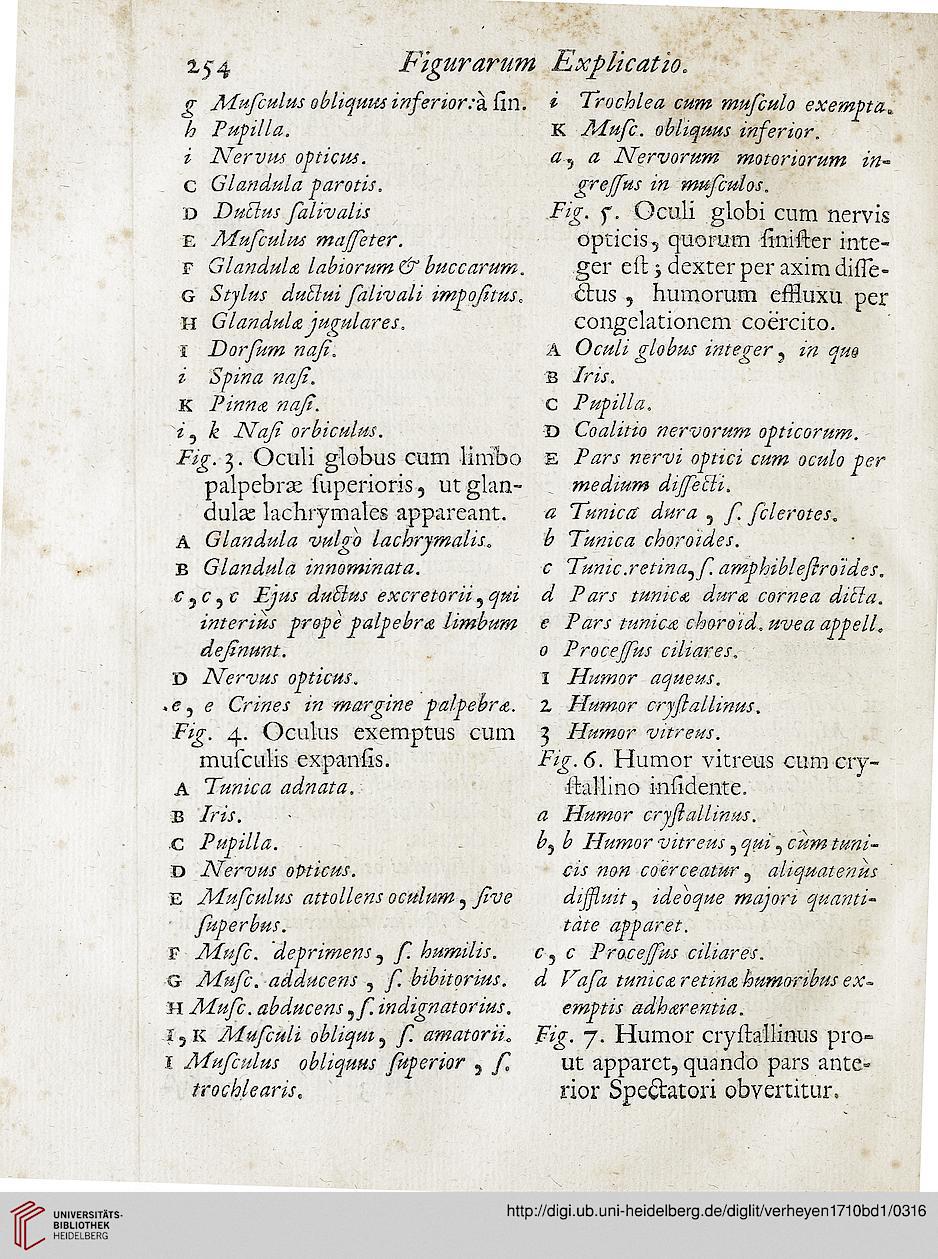 254 Figurarum Explicatio.
g Muſculus obliquus inferior:à ſin.
h Pupilla.
i Nervus opticus.
C Glandula parotis.
D Ductus ſalivalis
E Muſculus maſſeter.
F Glandulæ labiorum & buccarum.
G Stylus ductui ſalivali impoſitus.
H Glandulæ jugulares.
I Dorſum naſi.
i Spina naſi.
K Pinnæ naſi.
i, k Naſi orbiculus.
Fig. 3. Oculi globus cum limbo
palpebræ ſuperioris, ut glan-
dulæ lachrymales appareant.
A Glandula vulgò lachrymalis.
B Glandula innominata.
c, c, c Ejus ductus excretorii, qui
interiùs propè palpebræ limbum
deſinunt.
D Nervus opticus.
e, e Crines in margine palpebræ.
Fig. 4. Oculus exemptus cum
muſculis expanſis.
A Tunica adnata.
B Iris.
C Pupilla.
D Nervus opticus.
E Muſculus attollens oculum, ſive
ſuperbus.
F Muſc. deprimens, ſ. humilis.
G Muſc. adducens, ſ. bibitorius.
H Muſc. abducens, ſ. indignatorius.
I, K Muſculi obliqui, ſ. amatorii.
I Muſculus obliquus ſuperior, ſ.
trochlearis.
i Trochlea cum muſculo exempta.
K Muſc. obliquus inferior.
a, a Nervorum motoriorum in-
greſſus in muſculos.
Fig. 5. Oculi globi cum nervis
opticis, quorum ſiniſter inte-
ger eſt; dexter per axim diſſe-
ctus, humorum effluxu per
congelationem coërcito.
A Oculi globus integer, in quo
B Iris.
C Pupilla.
D Coalitio nervorum opticorum.
E Pars nervi optici cum oculo per
medium diſſecti.
a Tunica dura, ſ. ſclerotes.
b Tunica choroides.
c Tunic.retina, ſ. amphibleſtroïdes.
d Pars tunicæ duræ cornea dicta.
e Pars tunicæ choroid. uvea appell.
o Proceſſus ciliares.
1 Humor aqueus.
2 Humor cryſtallinus.
3 Humor vitreus.
Fig. 6. Humor vitreus cum cry-
ſtallino inſidente.
a Humor cryſtallinus.
b, b Humor vitreus, qui, cùm tuni-
cis non coërceatur, aliquatenùs
diffluit, ideòque majori quanti-
tate apparet.
c, c Proceſſus ciliares.
d Vaſa tunicæ retinæ humoribus ex-
emptis adhærentia.
Fig. 7. Humor cryſtallinus pro-
ut apparet, quando pars ante-
rior Spectatori obvertitur.
UNIVERSITÄTS-
BIBLIOTHEK
HEIDELBERG
http://digi.ub.uni-heidelberg.de/diglit/verheyen1710bd1/0316